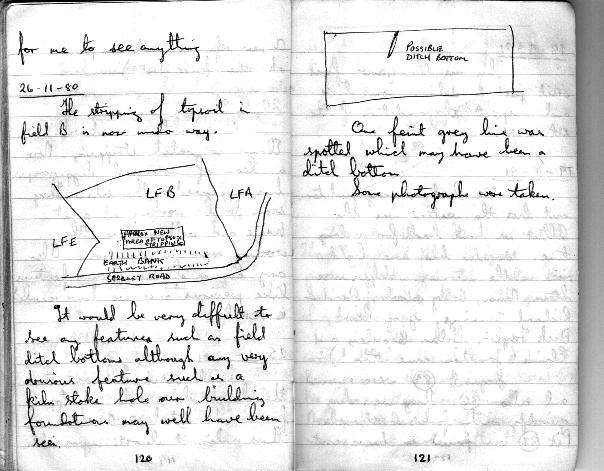 for me to see anything
26-11-80
The stripping of topsoil in
field B is now under way.
LFB
LFA
LFE
APPROX NEW
AREA OF TOPSOIL
STRIPPING
EARTH BANK
ROAD
It would be very difficult to
see any features such as field
ditch bottoms although any very
obvious feature such as a
kiln stoke hole or building
foundations may well have been
seen.
120
POSSIBLE
DITCH BOTTOM
One feint grey line was
spotted which may have been a
ditch bottom
Some photographs were taken.
121